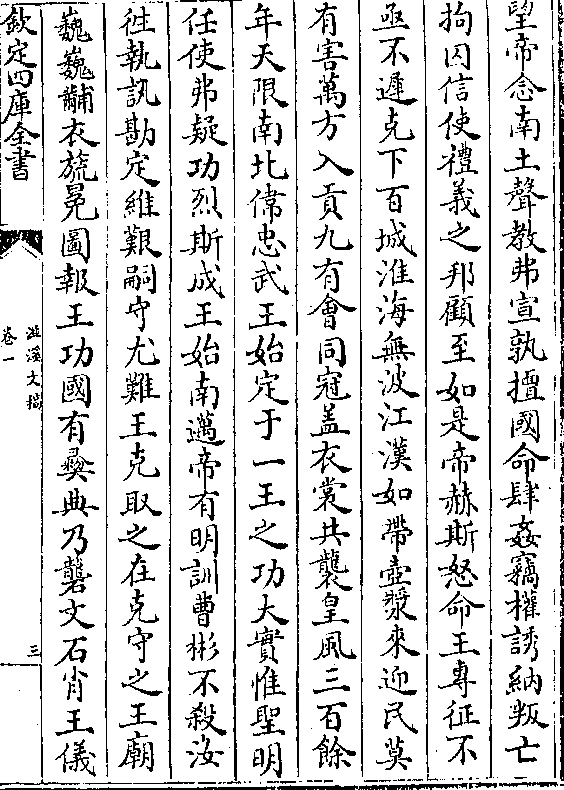 望帝念南土聲教弗宣孰擅國命肆姦竊權誘納叛亡
拘囚信使禮義之邦顧至如是帝赫斯怒命王專征不
亟不遲克下百城淮海無波江漢如帶壺漿來迎民莫
有害萬方入貢九有會同冠盖衣裳共襲皇風三百餘
年天限南北偉忠武王始定于一王之功大實惟聖明
任使弗疑功烈斯成王始南邁帝有明訓曹彬不殺汝
徃執訊勘定維艱嗣守尤難王克取之在克守之王廟
巍巍黼衣旒冕圖報王功國有彛典乃礱文石肖王儀
欽定四庫全書
滋溪文稿
卷一
三